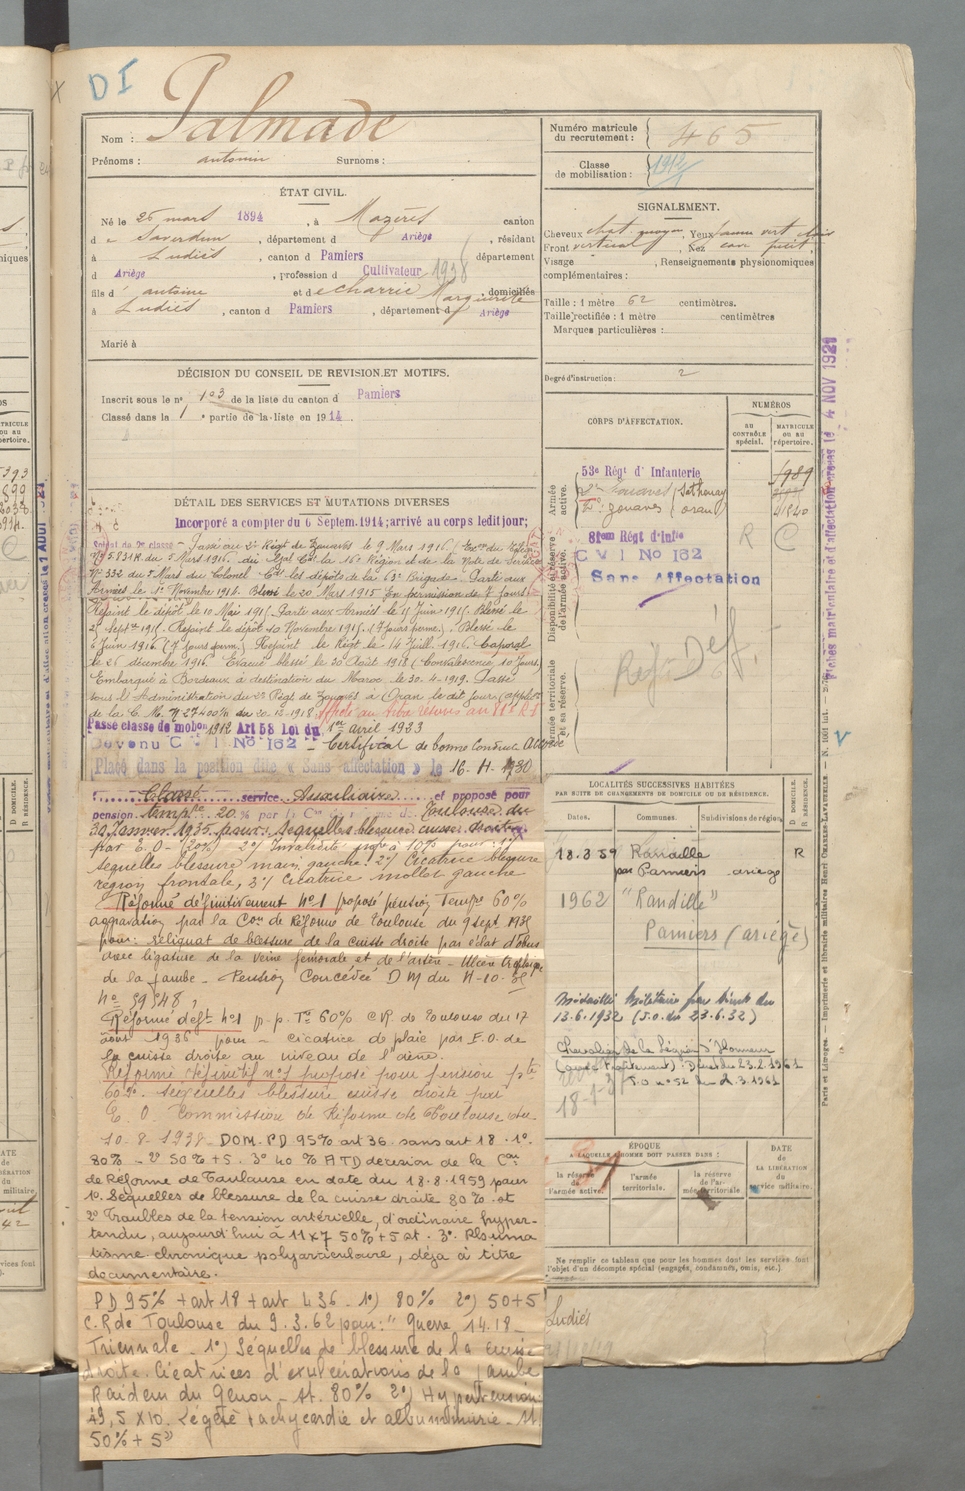 DI
Nom : Palmade
Prénoms : antonin Surnoms :
Numéro matricule du recrutement : 465
Classe de mobilisation : 1912
ÉTAT CIVIL.
Né le 26 mars 1894, à Mazères canton
d e Saverdun, département d Ariège, résidant
à Ludiès, canton d Pamiers département
d Ariège, profession d Cultivateur 1938
fils d' antoine et de echarrie Marguerite, domiciliés
à Ludiès, canton d Pamiers, département d Ariège
Marié à
SIGNALEMENT.
Cheveux chat. moyen, Yeux jaune vert clair
Front vertical, Nez cave petit.
Visage , Renseignements physionomiques
complémentaires :
Taille : 1 mètre 62 centimètres.
Taille rectifiée : 1 mètre centimètres
Marques particulières :
DÉCISION DU CONSEIL DE REVISION ET MOTIFS.
Inscrit sous le n° 103 de la liste du canton d Pamiers
Classé dans la 1 e partie de la liste en 1914.
Degré d'instruction : 2
CORPS D'AFFECTATION.
NUMÉROS
AU CONTRÔLE spécial.
MATRICULE OU AU répertoire.
Armée active.
53e Régt d' Infanterie 1989
2e Zouaves Sathonay
2e Zouaves oran
Disponibilité et réserve de l'armée active.
81em Régt d'Infie R C
C V I No 162
Sans Affectation
Armée territoriale et sa réserve.
Réf. Déf.
DÉTAIL DES SERVICES ET MUTATIONS DIVERSES
Incorporé a compter du 6 Septem. 1914; arrivé au corps ledit jour;
Soldat de 2e classe. Passé au 2e Régt de Zouaves le 9 Mars 1916.
N° 5.831 R. du 5 Mars 1916. du Gal Ct la 16e Région et de la Note de Service
N° 332 du 7 Mars du Colonel Ct les dépôts de la 63e Brigade. Parti aux
Armées le 1er Novembre 1914. Blessé le 20 Mars 1915 En permission de 7 jours.
Rejoint le dépôt le 10 Mai 1915. Parti aux Armées le 11 Juin 1915. Blessé le
25 septbre 1915. Rejoint le dépôt 10 Novembre 1915. (7 jours perm.) Blessé le
6 Juin 1916 (7 jours perm.) Rejoint le Régt le 14 Juill. 1916. Caporal
le 26 décembre 1916. Evacué blessé le 20 Août 1918 (Convalescence 10 jours)
Embarqué à Bordeaux à destination du Maroc le 30-4-1919. Passé
sous l'Administration du 2e Régt de Zouaves à Oran le dit jour
de la C. M. N° 27400 du 20-12-1918.
Passé classe de mobon 1912 Art 58 Loi du 1er avril 1923
Devenu C V I No 162 — Certificat de bonne Conduite Accordé
Placé dans la position dite « Sans affectation » le 16. 11. 1930
Classé service Auxiliaire et proposé pour
pension tempre 20 % par la Con de réforme de Toulouse du
30 Janvier 1935 pour : séquelles blessure cuisse droite
par E.O - (20%) 2°) Invalidité jusqu'à 10% pour : 1°)
séquelles blessure main gauche 2°) Cicatrice blessure
région frontale, 3°) Cicatrice mollet gauche
Réformé définitivement N°1 proposé pension Tempre 60%
aggravation par la Con de Réforme de Toulouse du 9 sept 1935
pour : reliquat de blessure de la cuisse droite par éclat d'obus
avec ligature de la veine fémorale et de l'artère - Ulcère trophique
de la jambe - Pension Concédée D M du 11-10-35
N° 59548,
Réformé deft N°1 p. p. Tre 60% CR de Toulouse du 17
août 1936 pour - cicatrice de plaie par E.O. de
la cuisse droite au niveau de l'aine.
Réformé définitif n°1 proposé pour pension pte
60%. séquelles blessure cuisse droite par
E. O. Commission de Réforme de Toulouse du
10-8-1938 - DOM. PD 95% art 36. sans art 18 - 1°.
80% - 2° 50% + 5. 3° 40% ATD décision de la Con
de Réforme de Toulouse en date du 18-8-1959 pour
1°. Séquelles de blessure de la cuisse droite 80%. et
2° Troubles de la tension artérielle, d'ordinaire hyper-
tendu, aujourd'hui à 11x7 50% + 5 et. 3°. Rhuma
tisme chronique polyarticulaire, déjà à titre
documentaire.
PD 95% + art 18 + art L36 - 1°) 80% 2°) 50+5
C.R de Toulouse du 9.3.62 pour: "Guerre 14.18 -
Triennale - 1°) Séquelles de blessure de la cuisse
droite. Cicatrices d'exulcérations de la jambe
Raideur du Genou - St. 80% 2°) Hypertension:
19,5 X 10. Légère tachycardie et albuminurie - St
50% + 5"
LOCALITÉS SUCCESSIVES HABITÉES
PAR SUITE DE CHANGEMENTS DE DOMICILE OU DE RÉSIDENCE.
Dates. Communes. Subdivisions de région. D DOMICILE. R RÉSIDENCE.
18.3.59 Randaille R
par Pamiers ariège
1962 "Randille"
Pamiers (ariège)
Médaille Militaire par décret du
13.6.1932 (J.O. du 23.6.32)
Chevalier de la Légion d'Honneur
(avec traitement) : Décret du 23.2.1961
J.O n° 52 du 2.3.1961
ÉPOQUE
A LAQUELLE L'HOMME DOIT PASSER DANS :
la réserve de l'armée active.
l'armée territoriale.
la réserve de l'armée territoriale
DATE de LA LIBÉRATION du service militaire.
Ne remplir ce tableau que pour les hommes dont les services font
l'objet d'un décompte spécial (engagés, condamnés, omis, etc.)
Ludiès
Fiches matriculaire et d'affectation créées le 4 NOV 1921
Paris et Limoges. — Imprimerie et librairie militaires Henri CHARLES-LAVAUZELLE.